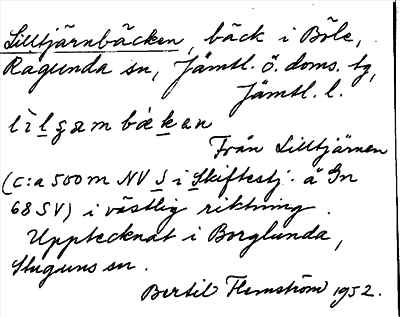 Lilltjärnbäcken, bäck i Böle,
Ragunda sn, Jämtl. ö. doms. tg,
Jämtl. l.
lìlgam bäkan
Från Lilltjärnen
(c:a 500 m NV S i Skiftestj. å Gn
68 SV) i västlig riktning.
Upptecknat i Borglunda,
Stuguns sn.
Bertil Flemström 1952.